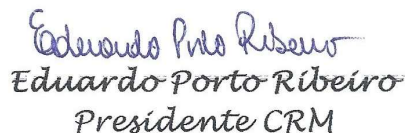 Eduardo Porto Ribeiro
Eduardo Porto Ribeiro
Presidente CRM